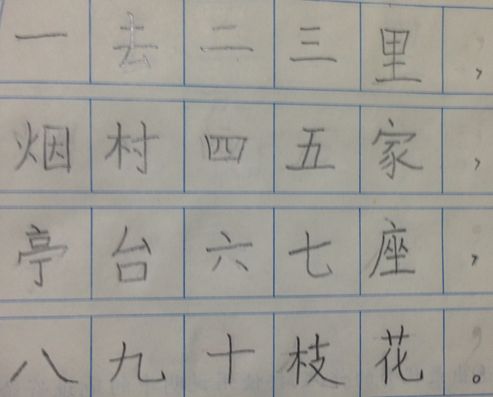 一去二三里,
烟村四五家,
亭台六七座,
八九十枝花。